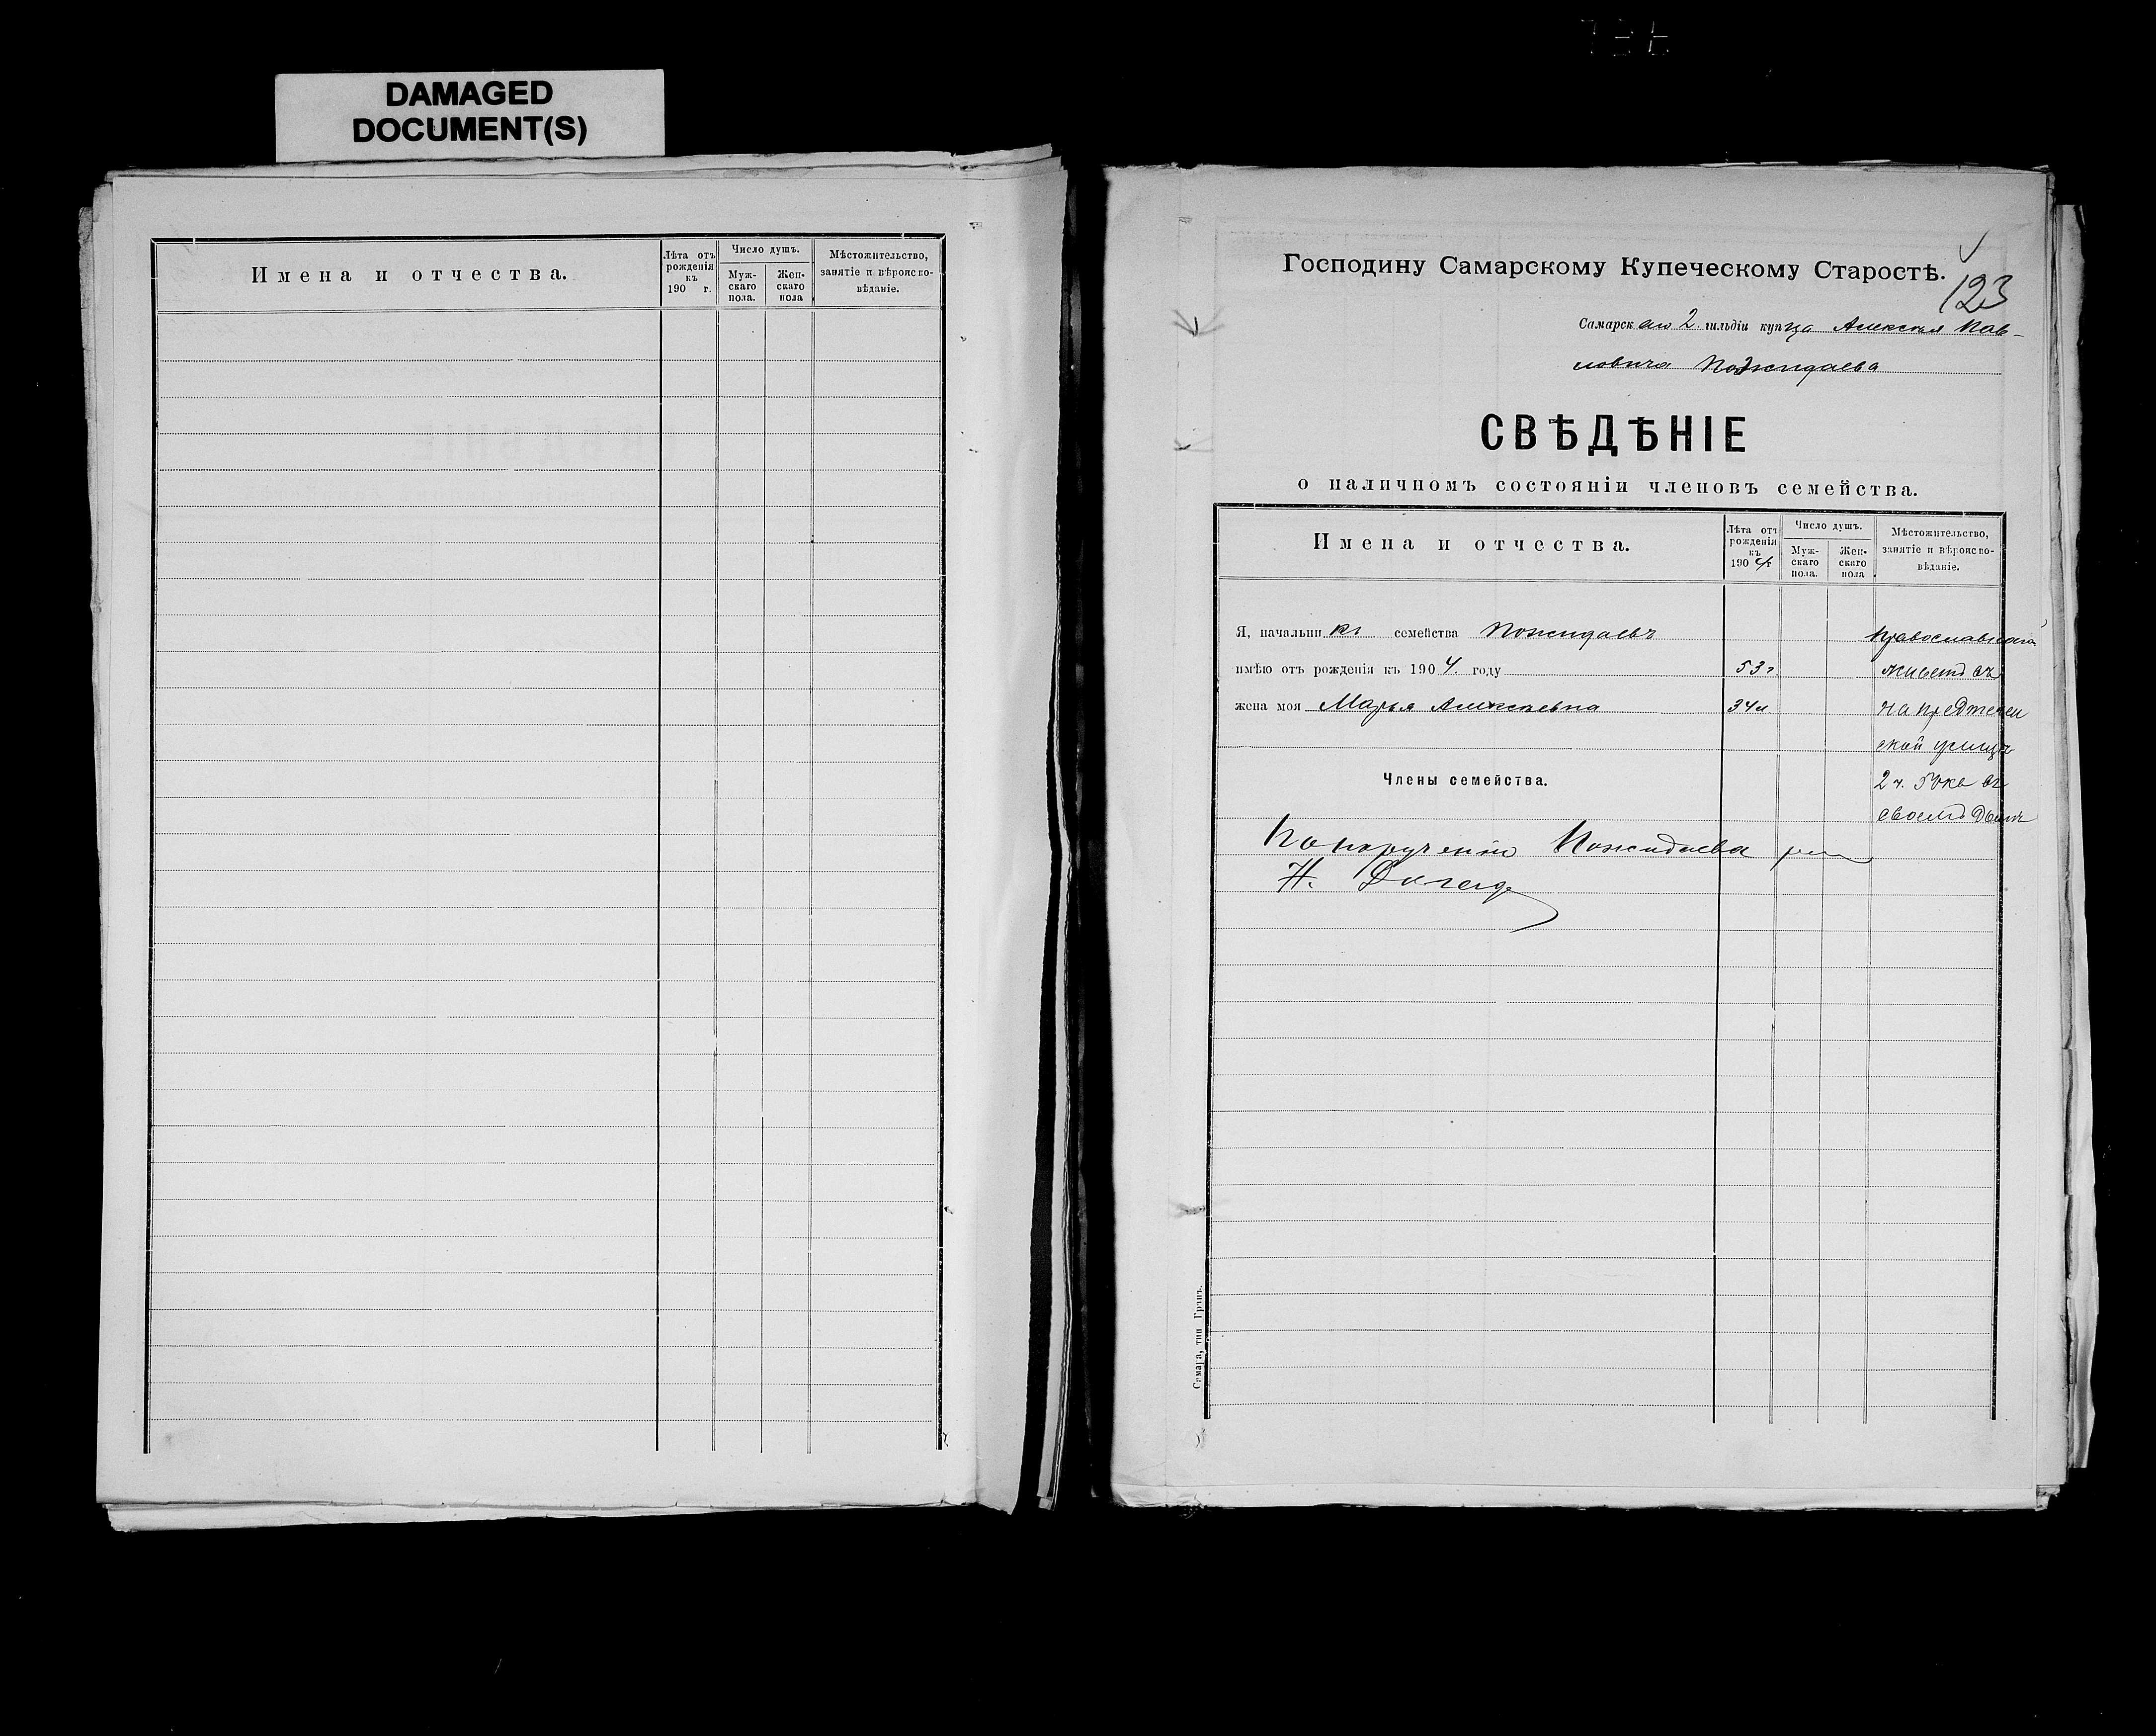 DAMAGED
DOCUMENT(S)
Имена и отчества.
Лѣта отъ
рожденія
къ
190 г.
Число душъ.
Муж-
скаго
пола.
Жен-
скаго
пола
Мѣстожительство,
занятіе и вѣроиспо-
вѣданіе.
Господину Самарскому Купеческому Старостѣ.
123
Самарскаго 2 гильдіи купца Алексѣя Пав-
ловича Пожидаева
СВѢДѢНІЕ
о наличномъ состояніи членовъ семейства.
Имена и отчества.
Лѣта отъ
рожденія
къ
1904
Число душъ.
Муж-
скаго
пола.
Жен-
скаго
пола
Мѣстожительство,
занятіе и вѣроиспо-
вѣданіе.
Я, начальникъ семейства Пожидаевъ Православнаго
имѣю отъ рожденія къ 1904. году 53 г живетъ въ
жена моя Марья Алексѣевна 34 л на Предтечен
ской улицѣ
Члены семейства. 2 ч. 5 ᲂкв въ
своемъ домѣ
По порученію Пожидаева
Н.
Самара, тип Гранъ.